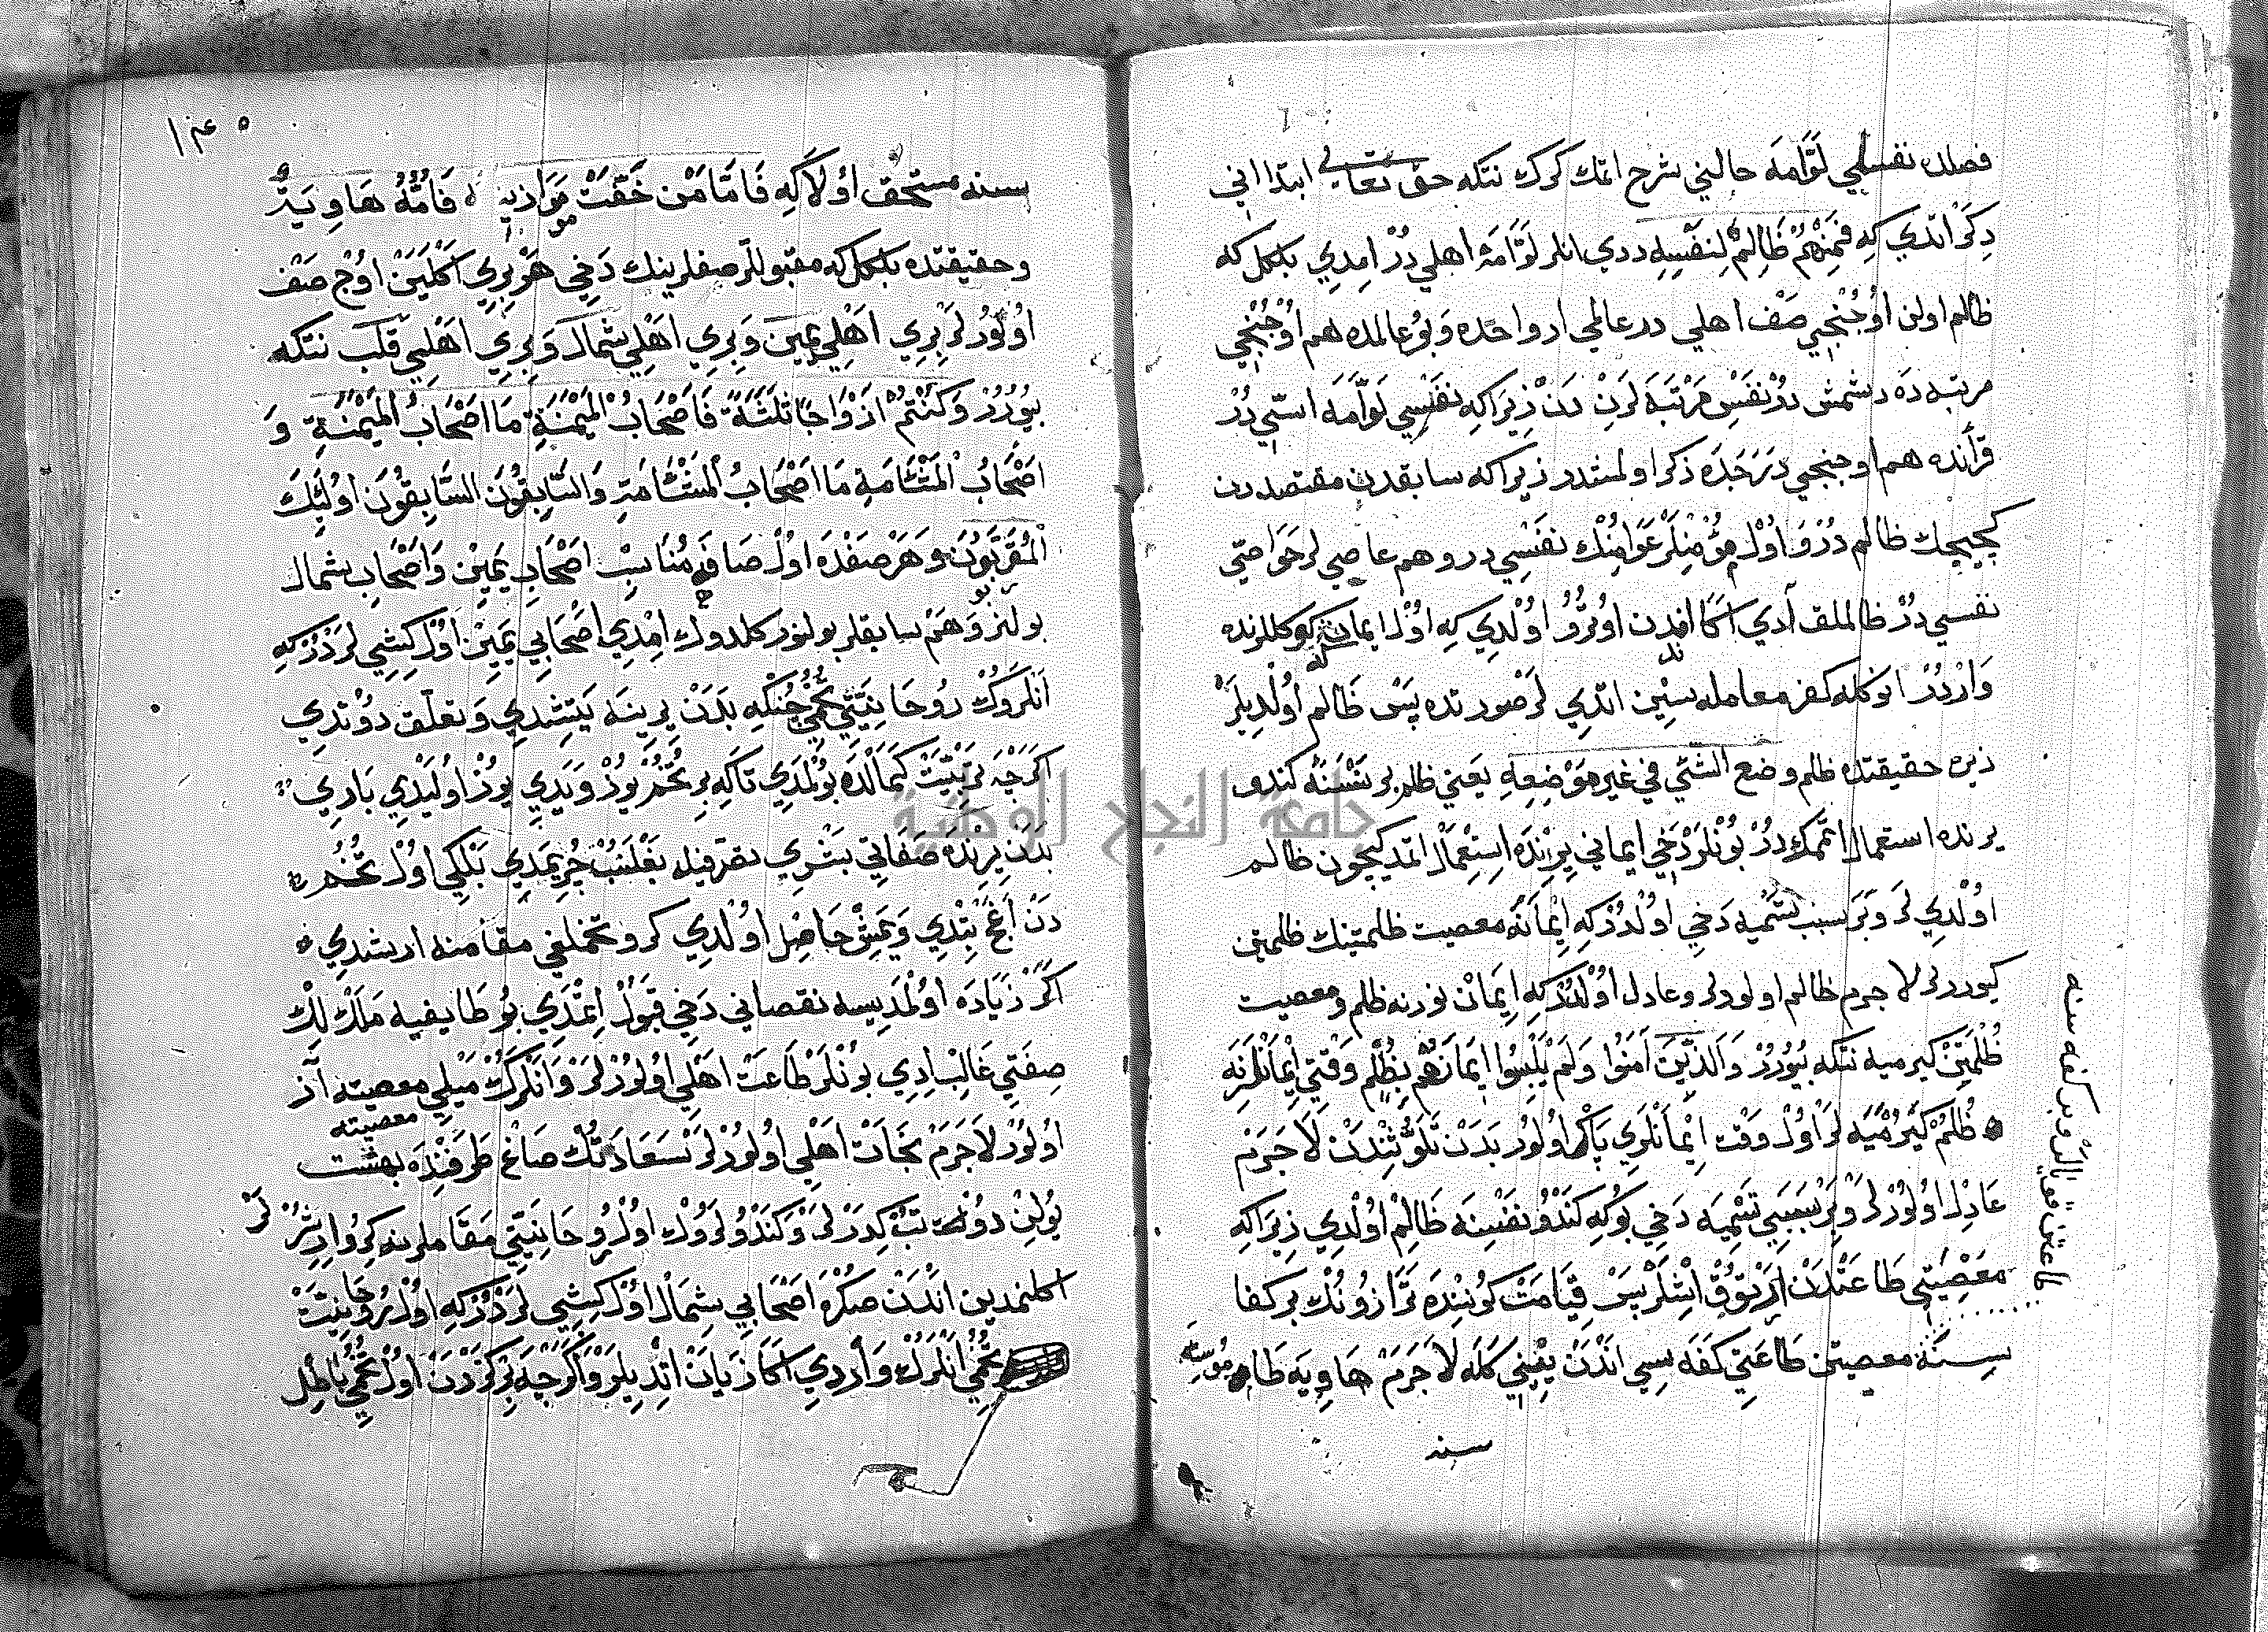 فصلده نفسِ لَوَّامَه حالني شرح اتمك كرك نتكه حق تعالى ابتدا اني
ذِكْر اتدي كه فَمِنْهُمْ ظَالِمٌ لِنَفْسِهِ ددي انلر لَوَّامَهْ اهلي دُرْ امدِي بلكل كه
ظالم اولن اوُجُنْجِي صَف اهلي در عالمي ارواحده وَبُو عالمده هم اوُجُنْجِي
مرتبه ده دشمش دُرْ نفس مَرْتَبَه لَرِنْ دَنْ زِيرَا كِه نفسِي لَوَّامَه اسّي دُرْ
قرأنده هم اوجنجي دَرَجَدَه ذكر اولمشدر زيرا كه سابقدن مقتصددن
كيجيجك ظالم دُرْ وَ اوُل مؤْمِنلَرْ عَوَامِنُكْ نفسِي در و هم عاصي لر خواصّي
نفسي دُرْ ظالملق آدي اكا اندن اوُترُو اوُلْدِي كِه اوُل ايمان كوكللرنده
وَارْدُرْ انوكله كفر معامله سِين اتدي لر صورتده پس ظَالم اوُلدِيلَرْ
زيره حقيقتده ظلم وضع الشّئي في غير مَوْضِعِهِ يَعني ظلم بر نَسْنَه كندو
يرنده استعمال اتممك دُرْ بُونْلَرْ دَخِي ايماني يِرِنْدَه اِستِعْمَال اتمدكيچون ظالم
اوُلْدِي لر وَبَرْ سبب تَسْميه دَخِي اولدُرْ كِه اِيمَانَه معصيت ظلمتينك ظلمتن
كيوررلر لا جرم ظالم اولورلر و عادل اوُلدُرْ كِه اِيمَانْ نورنه ظلم و معصيت
ظُلْمَتِنْ كيرميه نتكه بُيُورُرْ وَالَّذِينَ آمَنُوا وَلَمْ يَلْبِسُوا اِيمَانَهُمْ بِظُلْمٍ وَقْتِي اِيمَانْلَرِنَه
ظُلْم كَيُرْمِيَه لَرْ اوُل وقت اِيمَانْلَرِي پَاك اوُلُور بَدَنْ تَلَوُّثِنْدَنْ لَا جَرَمْ
عَادِل اوُلوُرْلَرْ وَبَرْ سَبَبِي تَسْمِيَه دَخِي بُو كِه كَنْدُو نفسِنَه ظَالِمْ اوُلْدِي زِيرَا كِه
مَعْصِيَتِي طَاعَتْدَنْ اَرْتوُقْ اِشْلَرْ پَسْ قِيَامَتْ كُونِنْدَه تَرَازُونُكْ بر كفا
سِنَه معصيتن طَاعَتِي كَفَه سِي اَنْدَنْ يِيني كَلَه لَا جَرَمْ هَاوِيَه
سنه
طاعتن قويالر و بر كفه سنه
١٤٥
سنه مستحق اوُلَا كِه فَامَّا مَنْ خَفَّتْ مَوَازِينُهُ فَاُمُّهُ هَاوِيَةٌ
و حقيقتده بلكل كه مقبوللر صفلرينك دَخِي هَرْ بِرِي اكليَن اوُچْ صَف
اوُلوُرلَرْ بِرِي اهْلِي يَمِين وَبِرِي اهْلِي شِمَال وَبِرِي اهْلِي قَلب نتكه
بُيُورُرْ وَكُنْتُمْ اَزْوَاجًا ثَلٰثَةً فَاَصْحَابُ الْمَيْمَنَةِ مَا اَصْحَابُ الْمَيْمَنَةِ وَ
اَصْحَابُ الْمَشْئَامَةِ مَا اَصْحَابُ الْمَشْئَامَةِ وَالسَّابِقُونَ السَّابِقُونَ اوُلٰئِكَ
الْمُقَرَّبُونَ وَهَرْ صَفْدَه اوُلْ صَافَه مُنَاسِبْ اصْحَابِ يَمِينْ وَاَصْحَابِ شمال
بولنر وَهَمْ سابقلر بولنور كلدوك اِمْدِي اصْحَابِي يَمِينْ اوُل كِشِي لَرْدُرْ كِه
اَنْلَرُوكْ رُوحَانِيَّتِي تُخْمِي چُنْكِه بَدَنْ يِرِينَه يَتِشِدِي وَتَعَلُّق دُوتدِي
اكَرْچَه تَرْبِيَتْ كَمَالْدَه بُولْمَدِي تَا كِه بِر تُخُمْ يُوزْ وَيَدِي يُوزْ اوُلَيْدِي بَارِي
بَدَنْ يِرِنْدَه صِفَاتِي بَشَرِي تصرّفيله بَغْلَنُبْ چُرِيمَدِي بَلْكِي اوُل تُخُمْ
دَنْ اَغَچْ بِتْدِي وَيَمِشْ حَاصِل اوُلْدِي كرو تخملغي مقامنه ارشدي
اكَرْ زِيَادَه اوُلْمَدِيسه نقصاني دَخِي قَبُول اِتْمَدِي بُو طَايفيه مَلَكْ لِكْ
صِفَتِي غَالِبِيدِي بُونْلَرْ طَاعَتْ اهْلِي اوُلوُرْلَرْ وَانْلَرُكْ مَيْلِي معصيته آز
معصيته
اوُلوُرْ لَا جَرَمْ نَجَاتْ اهْلِي اوُلوُرْلَرْ سَعَادَتُكْ صَاغ طَرَفِنْدَه بهشت
يُولِنْ دُوتُبْ كِدَرْلَرْ وَكَنْدُولَرُوك اوُل رُوحَانِيَّتِي مَقَاملرينه كِرُو اِرِشُرْلَرْ
اكلنمدين اَنْدَنْ صِكْرَه اَصْحَابِي شِمَالْ اوُل كِشِي لَرْدُرْ كِه اوُل رُوحَانِيَّتْ
تُخْمِي انْلَرُك وَارِدِي اكَا زِيَانْ اتْدِيلَرْ وَاكَرْچَه اوُل تُخْمِي بَاطِل